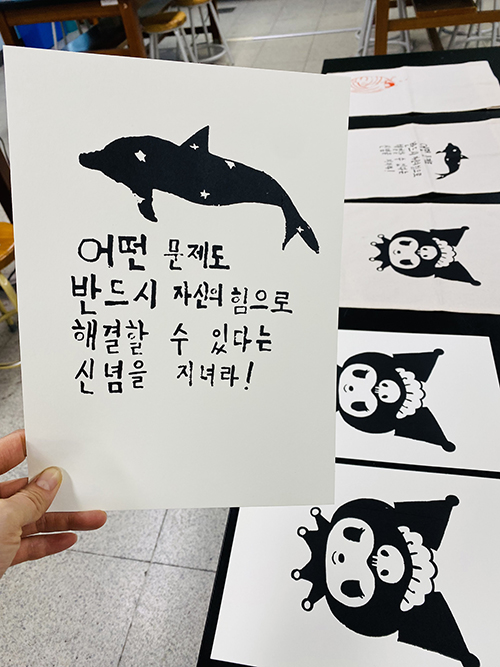 어떤 문제도
반드시 자신의 힘으로
해결할 수 있다는
신념을 지녀라!